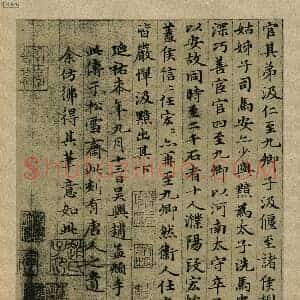 官其弟汲仁至九卿子汲偃至諸侯
姑姊子司馬安亦少與黯為太子洗馬
深巧善宦官四至九卿以河南太守卒
以安故同時至二千石者十人濮陽段宏
蓋侯信信任宏宏亦再至九卿然衛人仕
皆嚴憚汲黯出其
延祐柒年九月十三日吳興趙孟頫手
此傳于松雪齋此刻有唐人之遺
余仿佛得其筆意如此